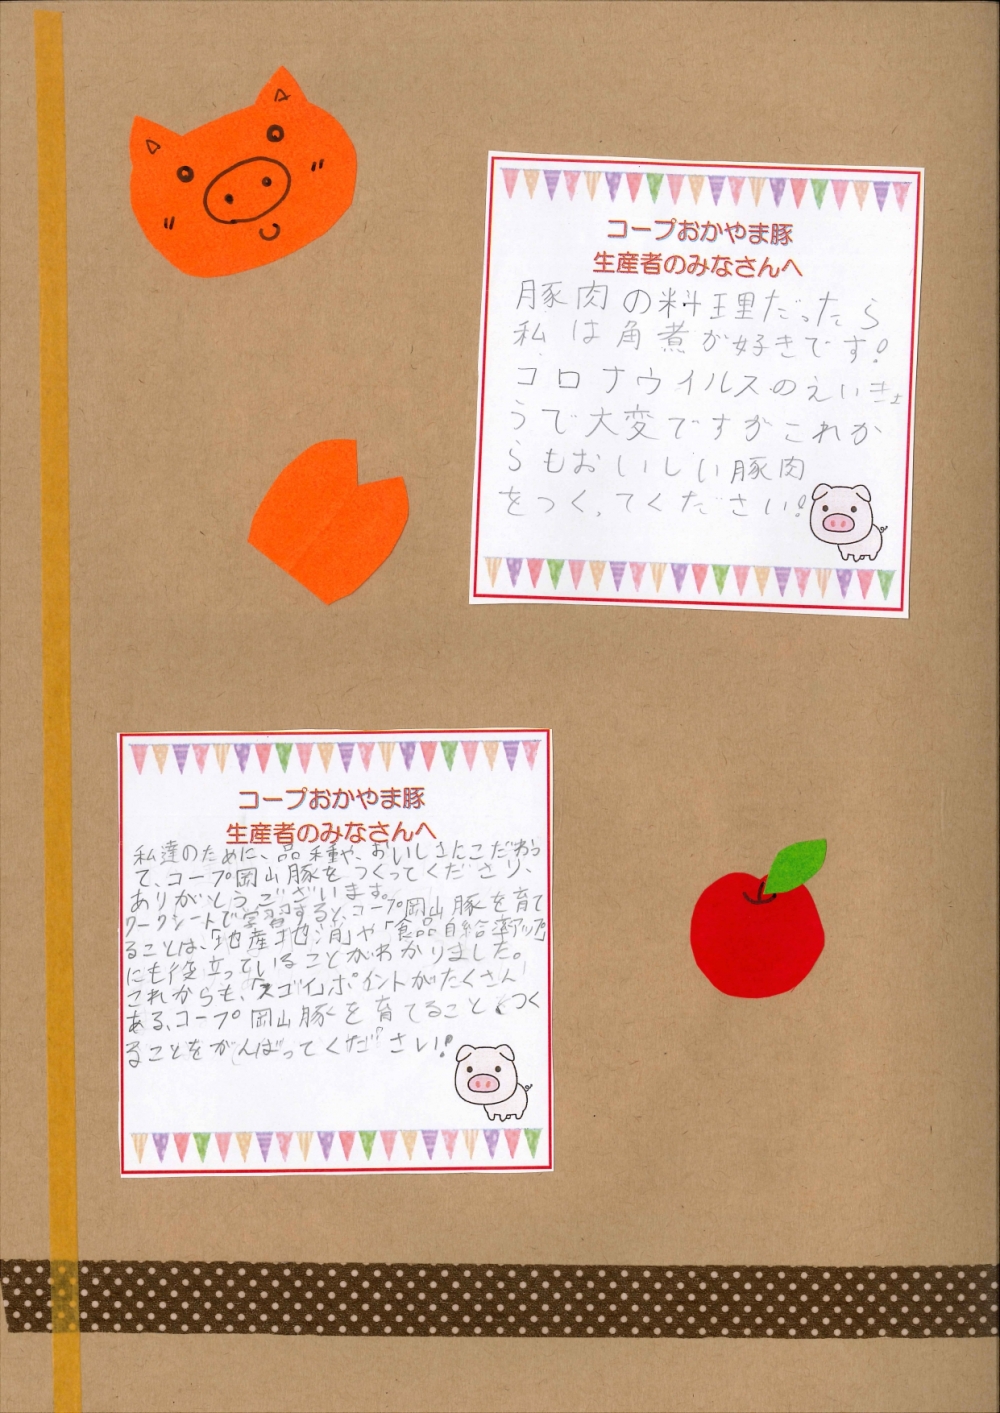 コープおかやま豚
生産者のみなさんへ
豚肉の料理だったら
私は角煮が好きです!
コロナウイルスのえいきょ
うで大変ですがこれか
らもおいしい豚肉
をつくってください!
コープおかやま豚
生産者のみなさんへ
私達のために、品種や、おいしさにこだわっ
て、コープ岡山豚をつくってくださり、
ありがとうございます。
ワークシートで学習すると、コープ岡山豚を育て
ることは、「地産地消」や「食品自給率アップ」
にも役立っていることがわかりました。
これからも、「スゴイ」ポイントがたくさん
ある、コープ岡山豚を育てること、つく
ることをがんばってください!